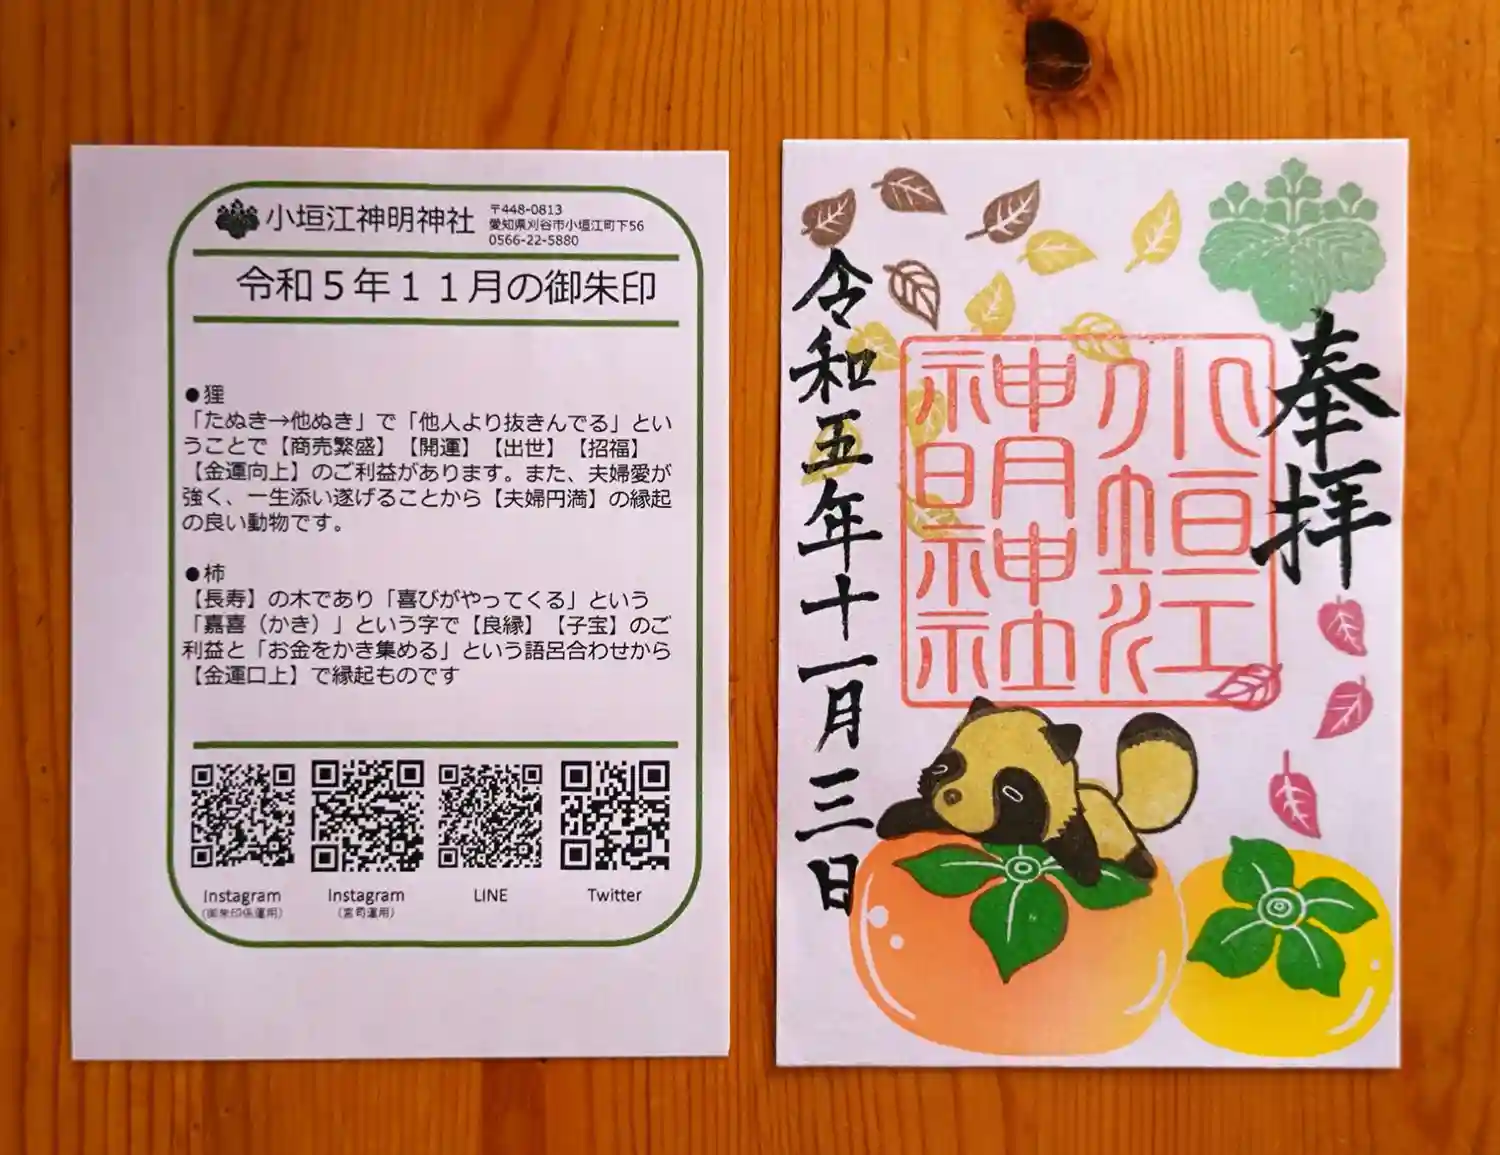 小垣江神明神社
〒448-0813
愛知県刈谷市小垣江町下56
0566-22-5880
令和５年１１月の御朱印
●狸
「たぬき→他ぬき」で「他人より抜きんでる」とい
うことで【商売繁盛】【開運】【出世】【招福】
【金運向上】のご利益があります。また、夫婦愛が
強く、一生添い遂げることから【夫婦円満】の縁起
の良い動物です。
●柿
【長寿】の木であり「喜びがやってくる」という
「嘉喜（かき）」という字で【良縁】【子宝】のご
利益と「お金をかき集める」という語呂合わせから
【金運口上】で縁起ものです
Instagram
（御朱印係運用）
Instagram
（宮司運用）
LINE
Twitter
奉拝
小垣江
神明神
社
令和五年十一月三日